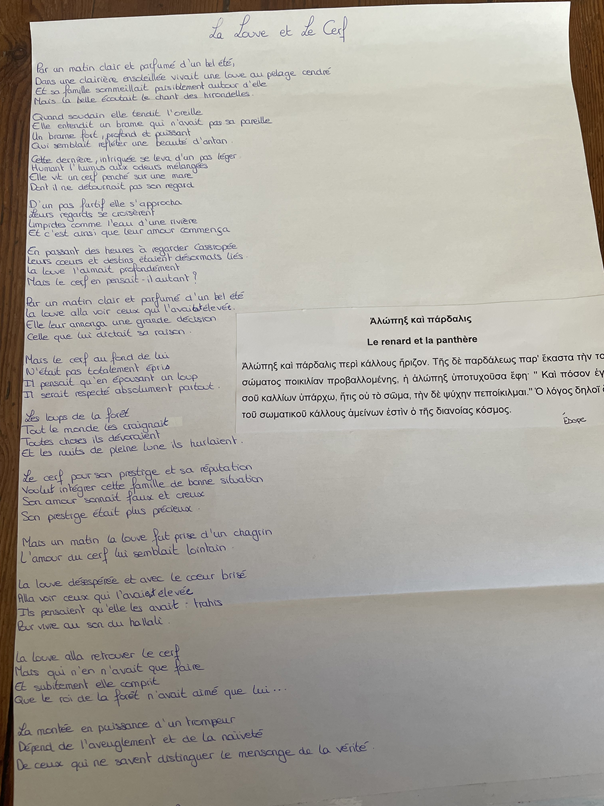 La Louve et Le Cerf
Par un matin clair et parfumé d'un bel été,
Dans une clairière ensoleillée vivait une louve au pelage cendré
Et sa famille sommeillait paisiblement autour d'elle
Mais la belle écoutait le chant des hirondelles.
Quand soudain elle tendit l'oreille
Elle entendit un brame qui n'avait pas sa pareille
Un brame fort, profond et puissant
Qui semblait refléter une beauté d'antan
Cette dernière, intriguée se leva d'un pas léger
Humant l'humus aux odeurs mélangées
Elle vit un cerf penché sur une mare
Dont il ne détournait pas son regard
D'un pas furtif elle s'approcha
Leurs regards se croisèrent
Limpides comme l'eau d'une rivière
Et c'est ainsi que leur amour commença
En passant des heures à regarder Cassiopée
Leurs coeurs et destins étaient désormais liés.
La louve l'aimait profondément
Mais le cerf en pensait-il autant ?
Par un matin clair et parfumé d'un bel été
La louve alla voir ceux qui l'avait elevée.
Elle leur annonça une grande décision
Celle que lui dictait sa raison.
Mais le cerf au fond de lui
N'était pas totalement épris
Il pensait qu'en épousant un loup
Il serait respecté absolument partout.
Les loups de la forêt
Tout le monde les craignait
Toutes choses ils dévoraient
Et les nuits de pleine lune ils hurlaient.
Le cerf pour son prestige et sa réputation
Voulut intégrer cette famille de bonne situation
Son amour sonnait faux et creux
Son prestige était plus précieux.
Mais un matin la louve fut prise d'un chagrin
L'amour du cerf lui semblait lointain.
La louve désespérée et avec le coeur brisé
Alla voir ceux qui l'avait elevée
Ils pensaient qu'elle les avait trahis
Pour vivre au son du hallali.
La louve alla retrouver le cerf
Mais qui n'en n'avait que faire
Et subitement elle comprit
Que le roi de la forêt n'avait aimé que lui...
La montée en puissance d'un trompeur
Dépend de l'aveuglement et de la naïveté
De ceux qui ne savent distinguer le mensonge de la vérité.
Ἀλώπηξ καὶ πάρδαλις
Le renard et la panthère
Ἀλώπηξ καὶ πάρδαλις περὶ κάλλους ἤριζον. Τῆς δὲ παρδάλεως παρ' ἕκαστα τὴν το
σώματος ποικιλίαν προβαλλομένης, ἡ ἀλώπηξ ὑποτυχοῦσα ἔφη· " Καὶ πόσον ἐγ
σοῦ καλλίων ὑπάρχω, ἥτις οὐ τὸ σῶμα, τὴν δὲ ψύχην πεποίκιλμαι." Ὁ λόγος δηλοῖ
τοῦ σωματικοῦ κάλλους ἀμείνων ἐστὶν ὁ τῆς διανοίας κόσμος.
Ésope